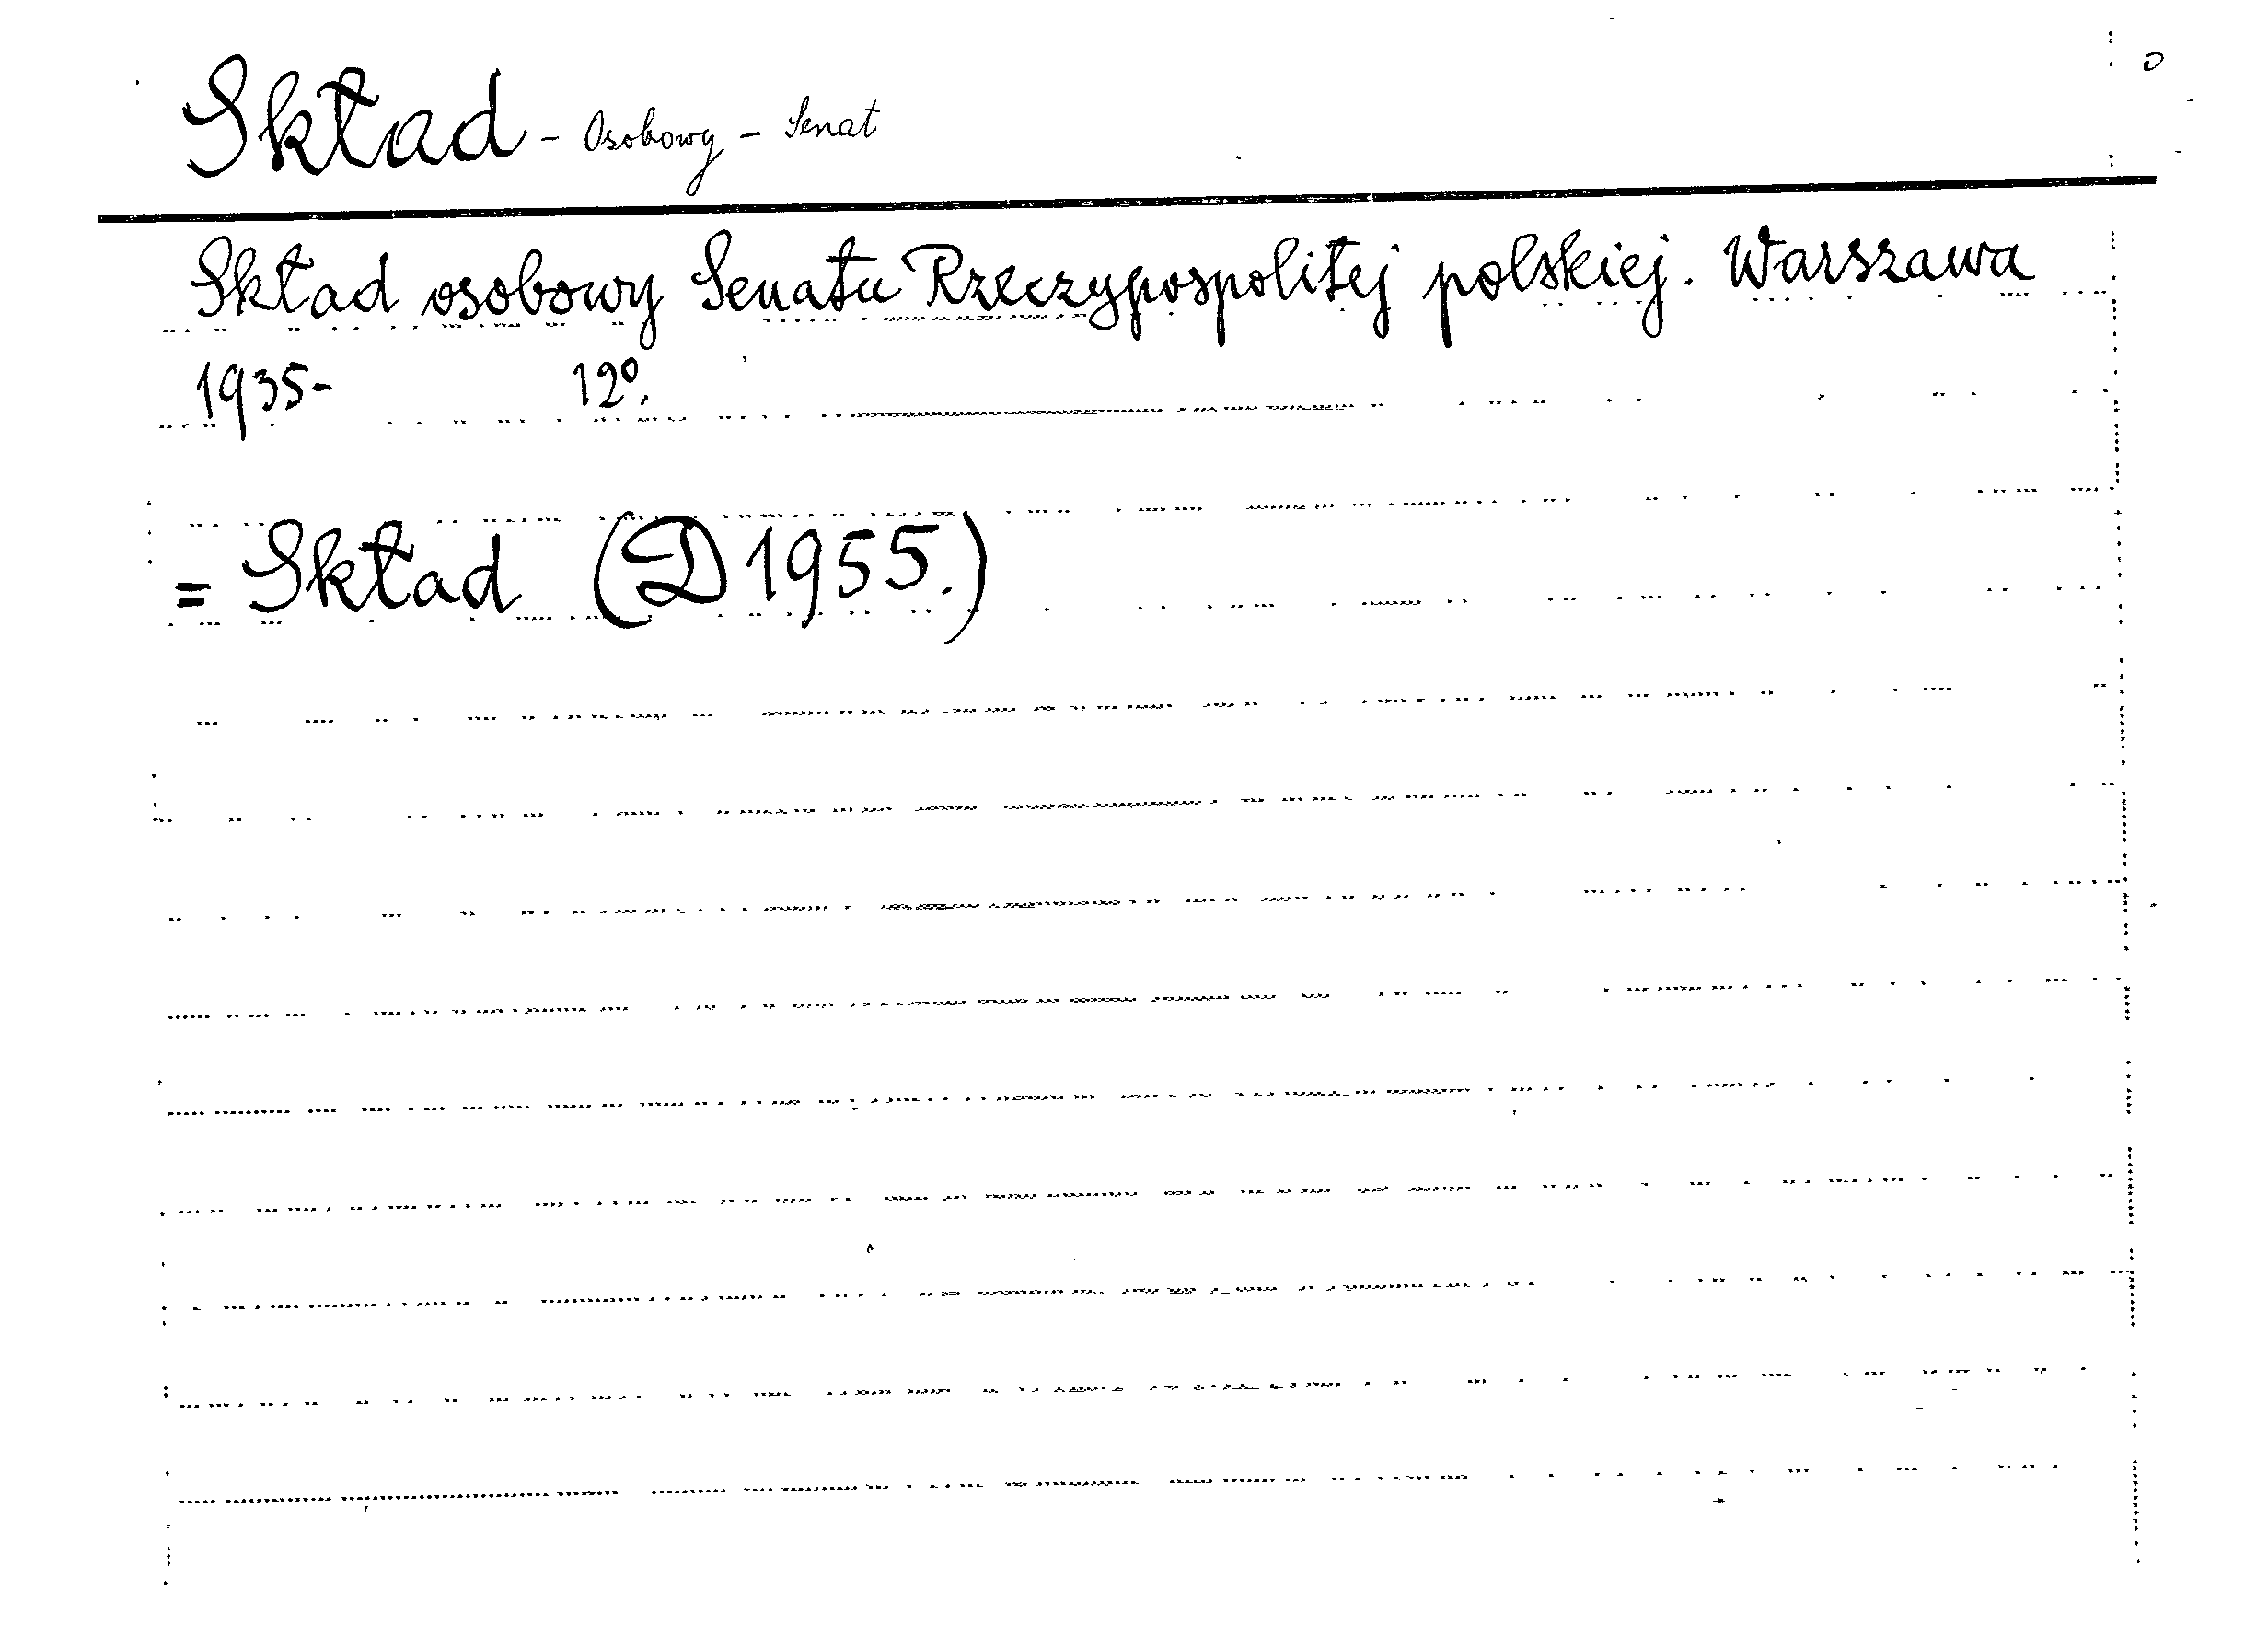 Skład - Osobowy - Senat
Skład osobowy Senatu Rzeczypospolitej polskiej. Warszawa
1935- 12º.
= Skład (D 1955.)